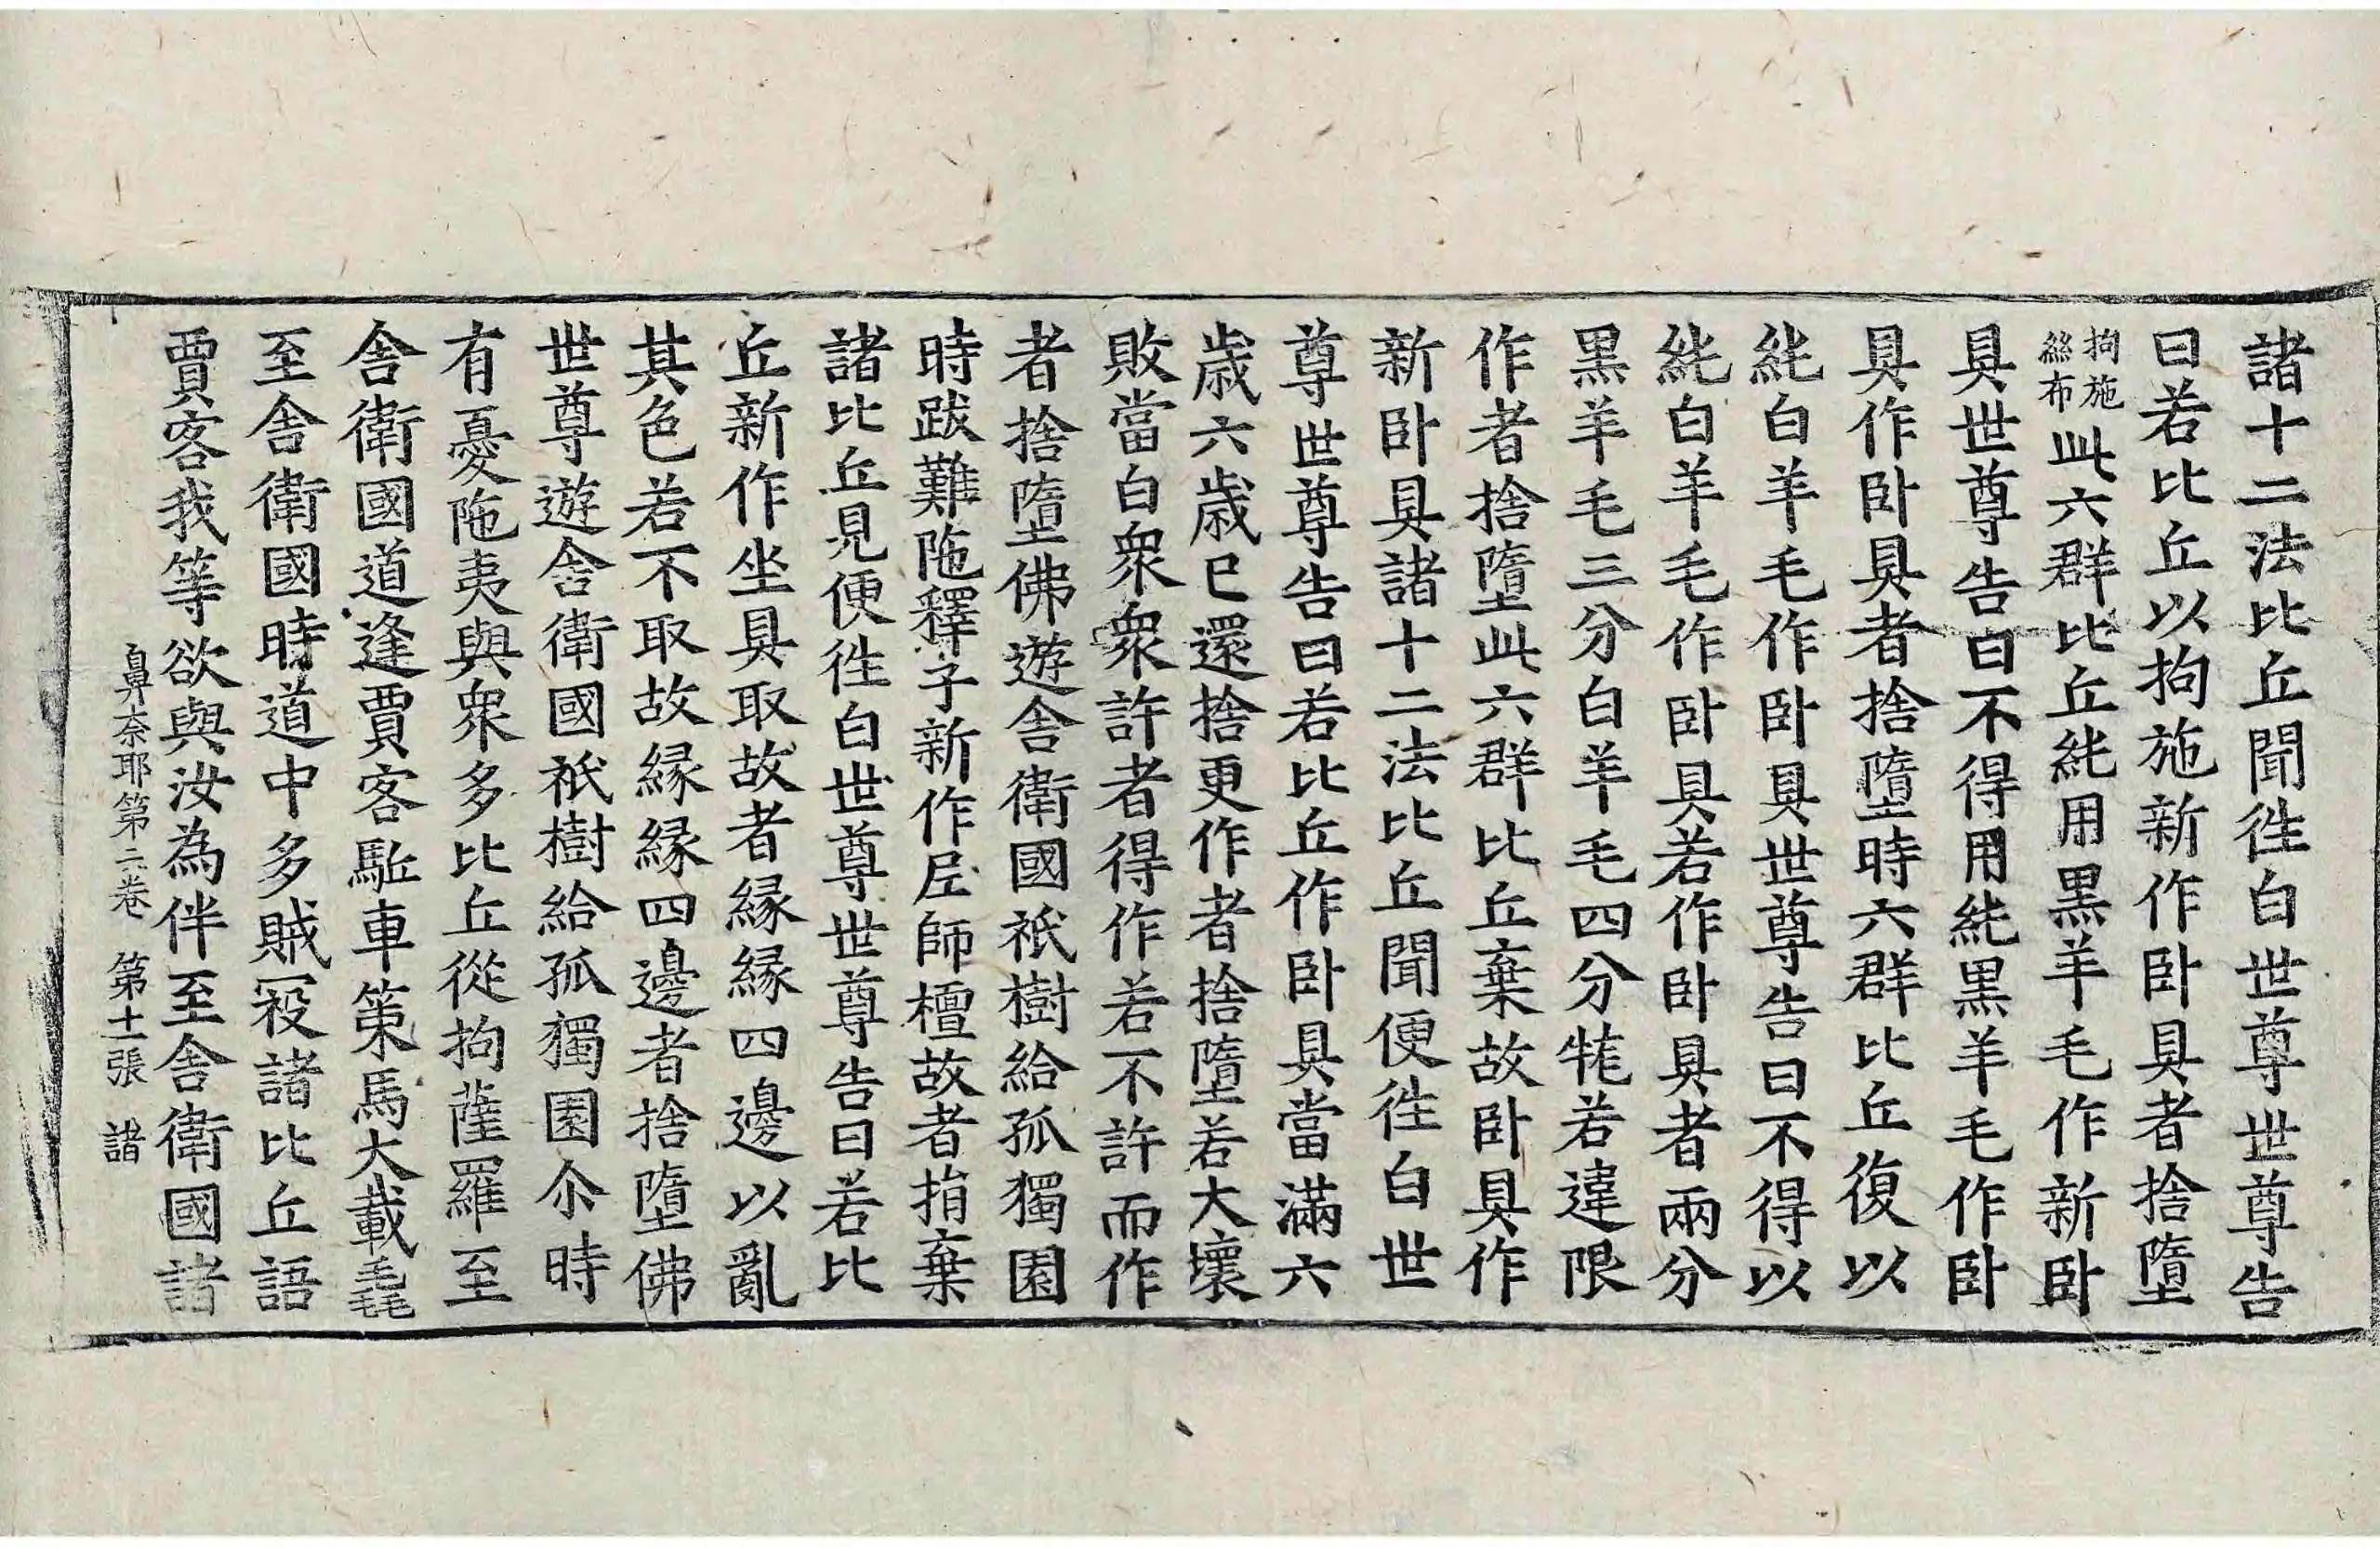 諸十二法比丘聞徃白世尊世尊告
曰若比丘以拘施新作卧具者捨墮
拘施
絲布此六群比丘純用黒羊毛作新卧
具世尊告曰不得用純黒羊毛作卧
具作卧具者捨墮時六群比丘復以
純白羊毛作卧具世尊告曰不得以
純白羊毛作卧具若作卧具者兩分
黒羊毛三分白羊毛四分牻若違限
作者捨墮此六群比丘棄故卧具作
新卧具諸十二法比丘聞便徃白世
尊世尊告曰若比丘作卧具當滿六
歳六歳已還捨更作者捨墮若大壞
敗當白衆衆許者得作若不許而作
者捨墮佛遊舎衛國祇樹給孤獨園
時跋難陁釋子新作𡰱師檀故者捐棄
諸比丘見便徃白世尊世尊告曰若比
丘新作坐具取故者縁縁四邊以亂
其色若不取故縁縁四邊者捨墮佛
世尊遊舎衛國祇樹給孤獨園尒時
有憂陁夷與衆多比丘從拘薩羅至
舎衛國道逢賈客駈車策馬大載毳
至舎衛國時道中多賊寇諸比丘語
賈客我等欲與汝為伴至舎衛國諸
鼻奈耶第二卷 第十一張 諸